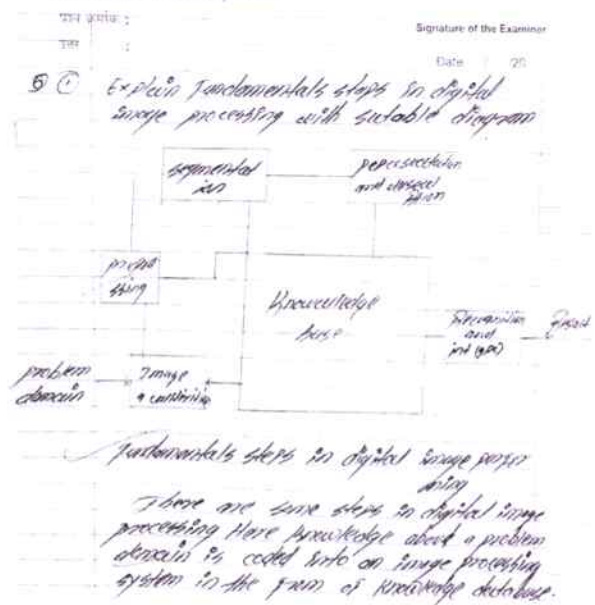 प्रश्न क्रमांक :
Signature of the Examiner
उत्तर
Date 20
5 1 Explain Fundamentals steps in digital
image processing with sutable diagram
segmentat
ion
and
proces
sing
Knowledge
base
Recognition
and
Result
problem
domain
Image
Fundamentals steps in digital image
ning
There are some steps in digital image
processing Here knowledge about a problem
domain is coded into an image processing
system in the from of knowledge database.